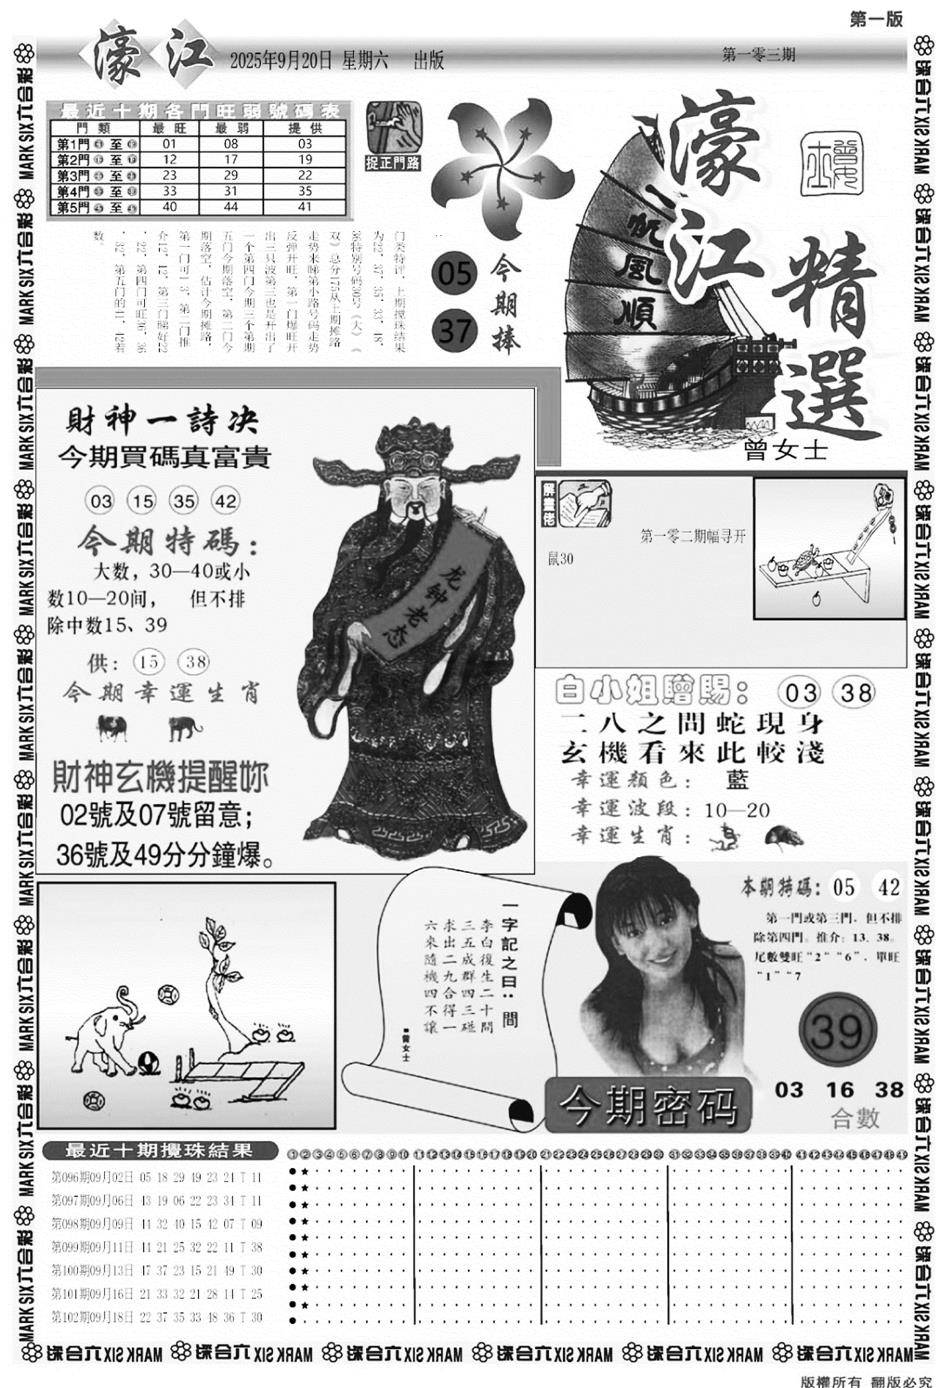 第一版
濠江 2025年9月20日 星期六 出版 第一零三期
最近十期各門旺弱號碼表
門類 最旺 最弱 提供
第1門 至 01 08 03
第2門 至 12 17 19
第3門 至 23 29 22
第4門 至 33 31 35
第5門 至 40 44 41
捉正門路
05
37
今期捧
一帆風順
濠江
精選
曾女士
財神一詩决
今期買碼真富貴
03 15 35 42
今期特碼：
大数，30—40或小
数10—20间， 但不排
除中数15、39
供：15 38
今期幸運生肖
財神玄機提醒妳
02號及07號留意；
36號及49分分鐘爆。
龙钟老态
第一零二期幅寻开
鼠30
白小姐贈賜：03 38
二八之間蛇現身
玄機看來此較淺
幸運顏色：藍
幸運波段：10—20
幸運生肖：
一字記之曰：問
李白復生二十問
三五成群四三碰
求出二九合得一
六來隨機四不讓
■曾女士
本期特碼：05 42
第一門或第三門，但不排
除第四門。推介：13．38。
尾數雙旺“2”“6”，單旺
“1”“7
39
03 16 38
合數
今期密码
最近十期攪珠結果
第096期09月02日 05 18 29 49 23 24 T 11
第097期09月06日 43 19 06 22 23 34 T 11
第098期09月09日 44 32 40 15 42 07 T 09
第099期09月11日 44 21 25 32 22 14 T 38
第100期09月13日 47 37 23 15 21 49 T 30
第101期09月16日 21 33 32 21 28 14 T 25
第102期09月18日 22 37 35 33 48 36 T 30
MARK SIX 六合彩
版權所有 翻版必究